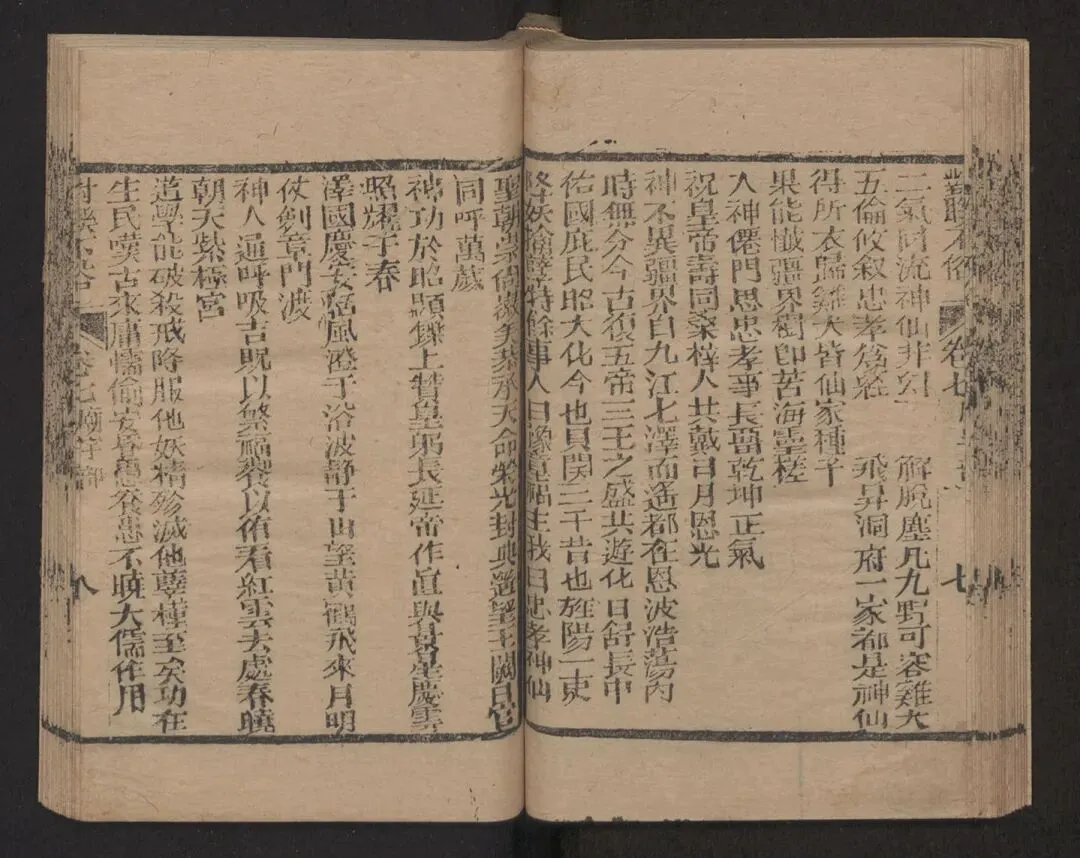 對聯不俗 卷七 七
二氣同流神仙非幻 解脫塵凡九野可容雞犬
五倫攸叙忠孝為經 飛昇洞府一家都是神仙
得所衣歸雞犬皆仙家種子
果能懺彊界樹卽苦海靈槎
人神僊門思忠孝事長畱乾坤正氣
祝皇帝壽同桑梓人共戴日月恩光
神不異疆界自九江七澤而遙都在恩波浩蕩內
時無分今古復五帝三王之盛共遊化日舒長中
佑國庇民昭大化今也貝闕三千昔也旌陽一吏
降妖 特餘事人曰豫章福主我曰忠孝神仙
聖朝崇尚 美恭承天命榮光封典遙望玉闕日官
同呼萬歲
神功於昭顯鑠上贊皇躬長延帝作眞與景星慶雲
照耀于春
澤國慶安恬風澄于浴波靜于山望黃鶴飛來月明
仗劍章門渡
神人通呼吸吉旣以繁福饗以侑看紅雲去處春曉
朝天紫極宮
道學能破殺戒降服他妖精殄滅他孽種至矣功在
生民嘆古來庸懦偷安昏愚養患不曉大儒作用
卷七 八